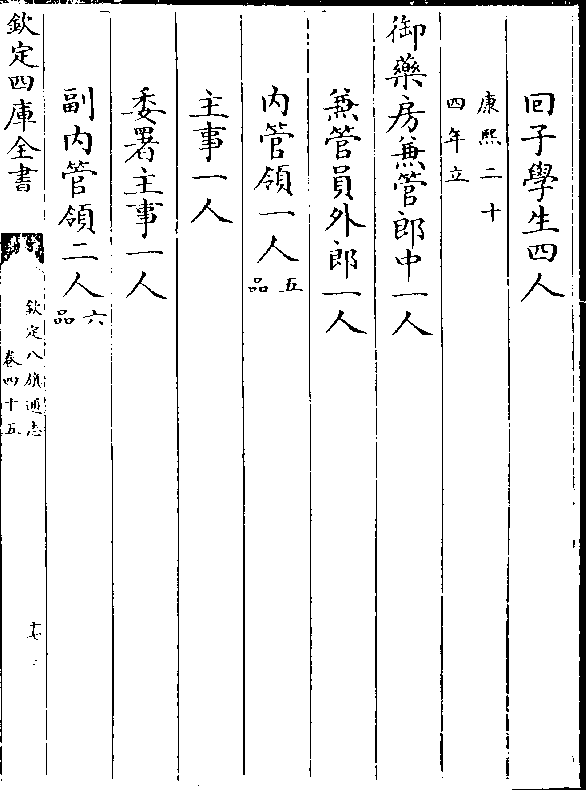 回子學生四人
康熙二十
四年立
御藥房兼管郎中一人
兼管員外郎一人
内管領一人五品
主事一人
委署主事一人
副内管領二人六品
欽定四庫全書
欽定八旗通志
卷四十五